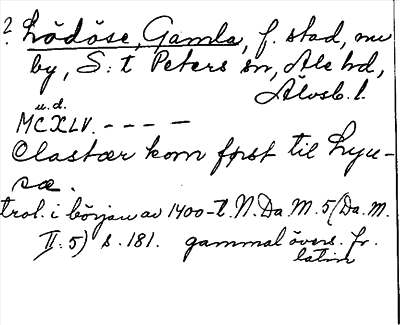 ? Lödöse, Gamla, f. stad, nu
by, S:t Peters sn, Ale hd,
Älvsb. l.
u.d.
MCXLV. - - - -
Olastær kom først til Lyu-
sæ.
trol. i början av 1400-t. N. Da M. 5 (Da. M.
II. 5) s. 181. gammal övers. fr.
latin